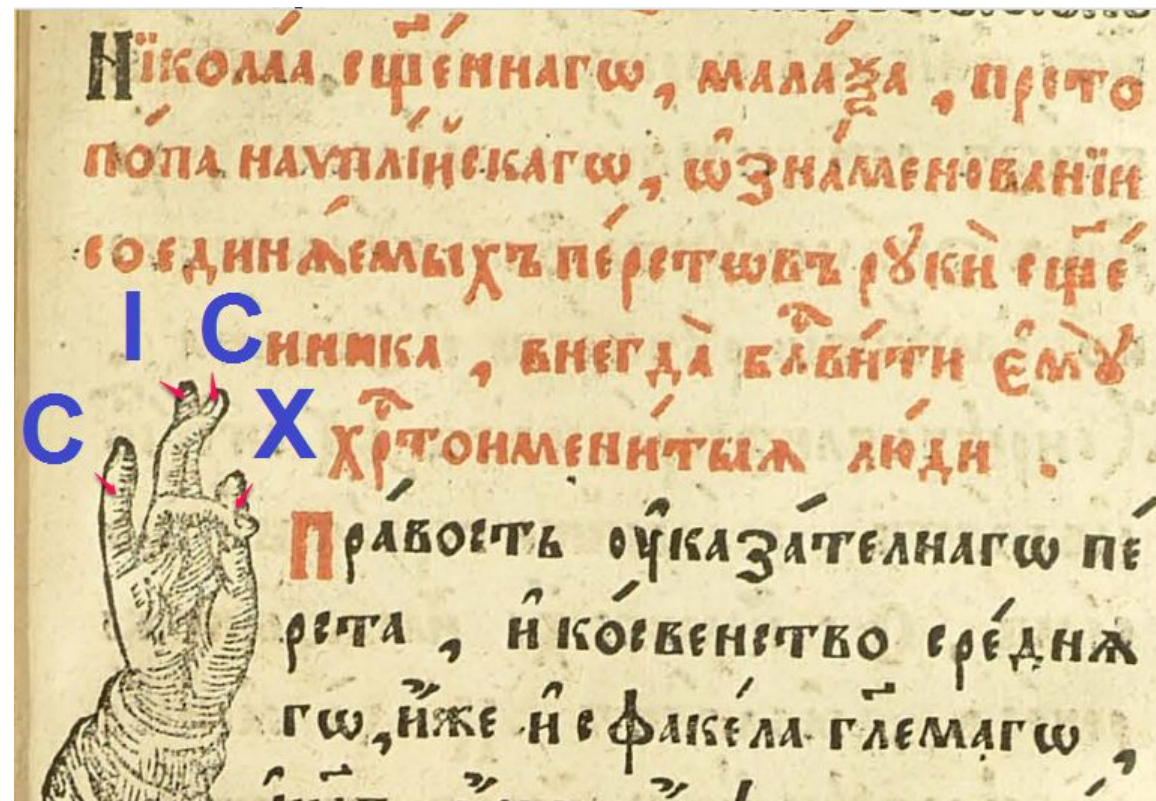 Нїкола́а сщ҃е́ннагѡ, мала́ѯа, прето
по́па наѵплі́йскагѡ, ѡ҆зна́менованїи
соединѧ́емыхъ пе́рстѡвъ рꙋкѝ сщ҃е́
I C ннника, внегда̀ блⷭ҇ви́ти є҆мꙋ̀
C X хрⷭ҇тоимени́тыѧ лю́ди.
Пра́вость ᲂу҆каза́телнагѡ пе́
рста, и҆ ко́свенство сре́днѧ
гѡ, и҆́же и҆ сфаке́ла гл҃емагѡ,